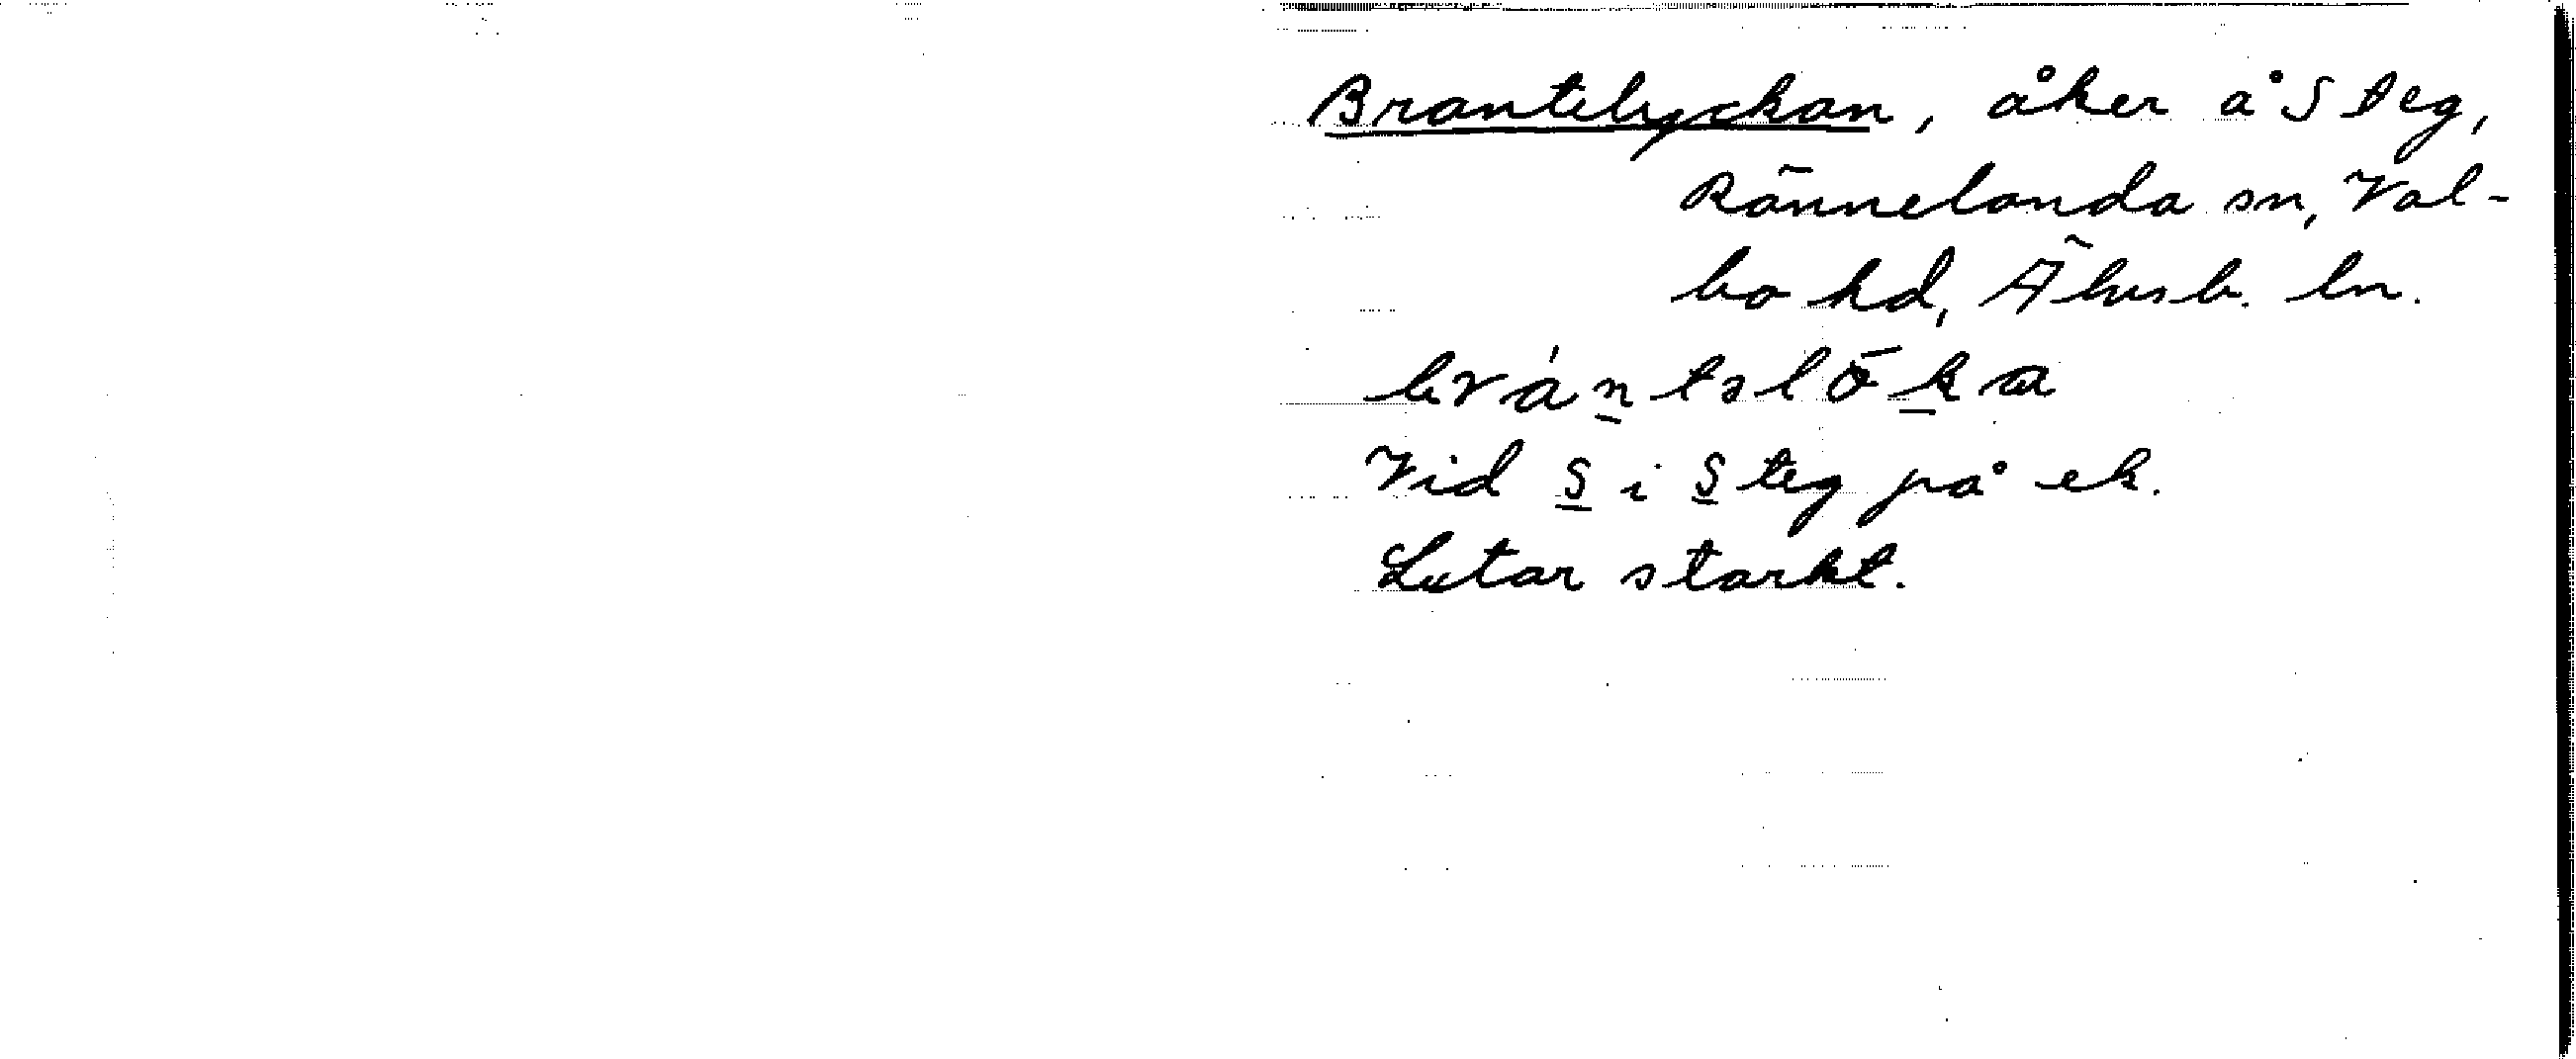 Brantelyckan, åker å S Steg,
Rännelanda sn, Val-
bo hd, Älvsb. ln.
Vid S i S teg på ek.
Lutar starkt.